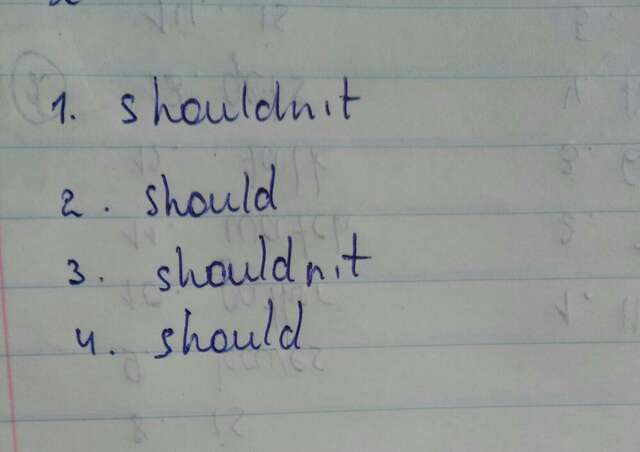 1. shouldn't
2. should
3. shouldn't
4. should